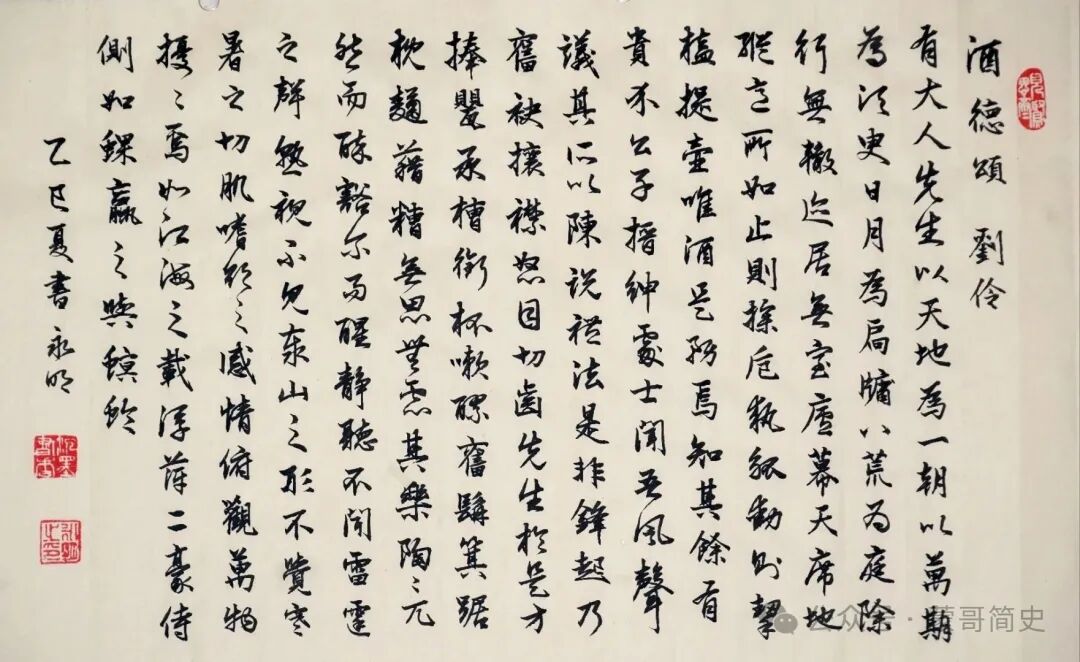 酒德頌 劉伶
有大人先生以天地為一朝以萬期
為須臾日月為扃牖八荒為庭除
行無轍迹居無室廬幕天席地
縱意所如止則操卮執觚動則挈
榼提壺唯酒是務焉知其餘有
貴介公子搢紳處士聞吾風聲
議其所以陳說禮法是非鋒起乃
奮袂攘襟怒目切齒先生於是方
捧罌承槽銜杯漱醪奮髯箕踞
枕麴藉糟無思無慮其樂陶々兀
然而醉豁尔而醒靜聽不聞雷霆
之聲熟視不見泰山之形不覺寒
暑之切肌嗜欲之感情俯觀萬物
擾々焉如江海之載浮萍二豪侍
側如蜾蠃之與螟蛉
乙巳夏書永明
公众号 · 哥简史